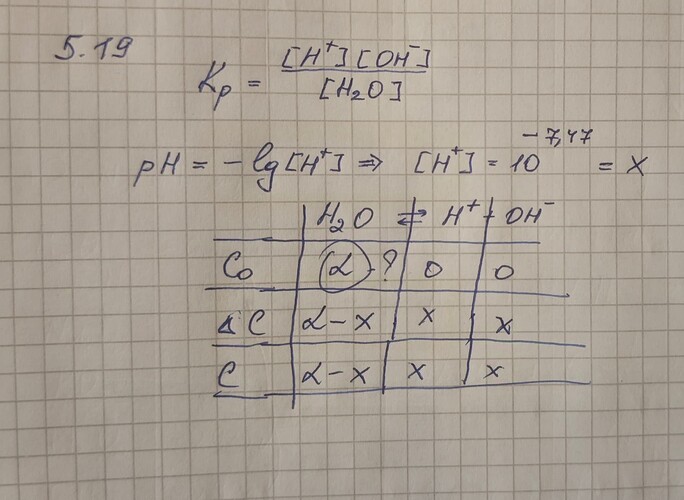 5.19
Kp = [H⁺][OH⁻] / [H₂O]
pH = -lg[H⁺] ⇒ [H⁺] = 10^-7,47 = x
H₂O ⇄ H⁺ + OH⁻
C₀ α - ? 0 0
ΔC α - x x x
C α - x x x